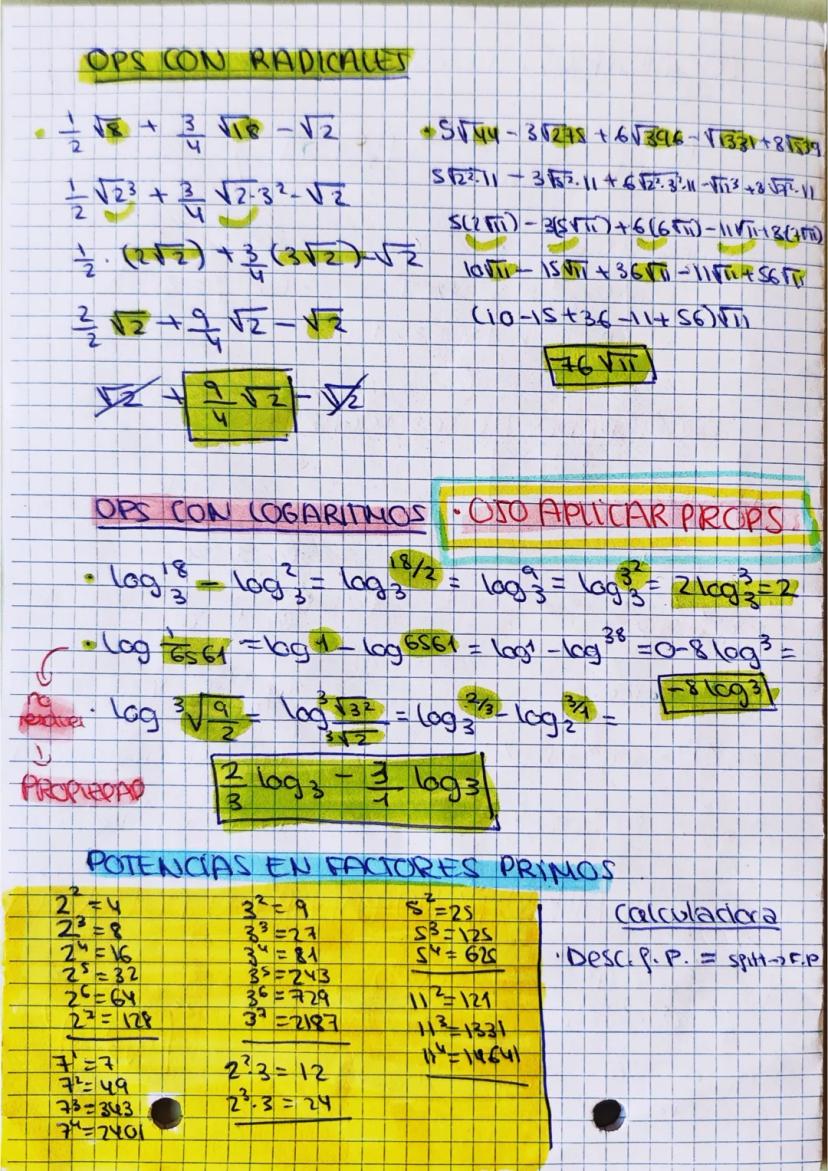 OPS CON RADICALES
· 1/2 √8 + 3/4 √18 - √2
1/2 √2³ + 3/4 √2·3² - √2
1/2 · (2√2) + 3/4 (3√2) - √2
2/2 √2 + 9/4 √2 - √2
√2 + 9/4 √2 - √2
· 5√44 - 3√275 + 6√396 - √1331 + 8√539
5√2²·11 - 3√5²·11 + 6√2²·3²·11 - √11³ + 8√7²·11
5(2√11) - 3(5√11) + 6(6√11) - 11√11 + 8(7√11)
10√11 - 15√11 + 36√11 - 11√11 + 56√11
(10-15+36-11+56)√11
76√11
OPS CON LOGARITMOS
· OJO APLICAR PROPS
· log₃¹⁸ - log₃² = log₃^18/2 = log₃⁹ = log₃^3² = 2log₃³ = 2
· log 1/6561 = log¹ - log⁶⁵⁶¹ = log¹ - log^3⁸ = 0-8log³ =
-8log³
· log ³√9/2 = log ³√3²/³√2 = log₃^2/3 - log₂^3/1 =
2/3 log₃ - 3/1 log₃
PROPIEDAD
POTENCIAS EN FACTORES PRIMOS
2² = 4
2³ = 8
2⁴ = 16
2⁵ = 32
2⁶ = 64
2⁷ = 128
7¹ = 7
7² = 49
7³ = 343
7⁴ = 2401
3² = 9
3³ = 27
3⁴ = 81
3⁵ = 243
3⁶ = 729
3⁷ = 2187
2²·3 = 12
2³·3 = 24
5² = 25
5³ = 125
5⁴ = 625
11² = 121
11³ = 1331
11⁴ = 14641
Calculadora
· Desc. f. P. = shift → F.P